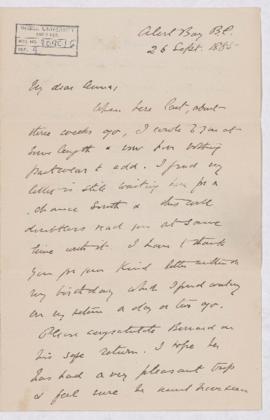 McGILL UNIVERSITY
ACC. NO.
REF.
Alert Bay B.C.
26 Sept. 1885
My dear Anna,
When here last, about
three weeks ago, I wrote to you at
some length & now have nothing
particular to add. I find my
letter is still waiting here for a
chance South & this will
doubtless reach you at same
time with it. I have to thank
you for your kind letter written on
my birthday which I found waiting
on my return a day or two ago.
Please congratulate Bernard on
his safe return. I hope he
has had a very pleasant trip
& feel sure he must have seen